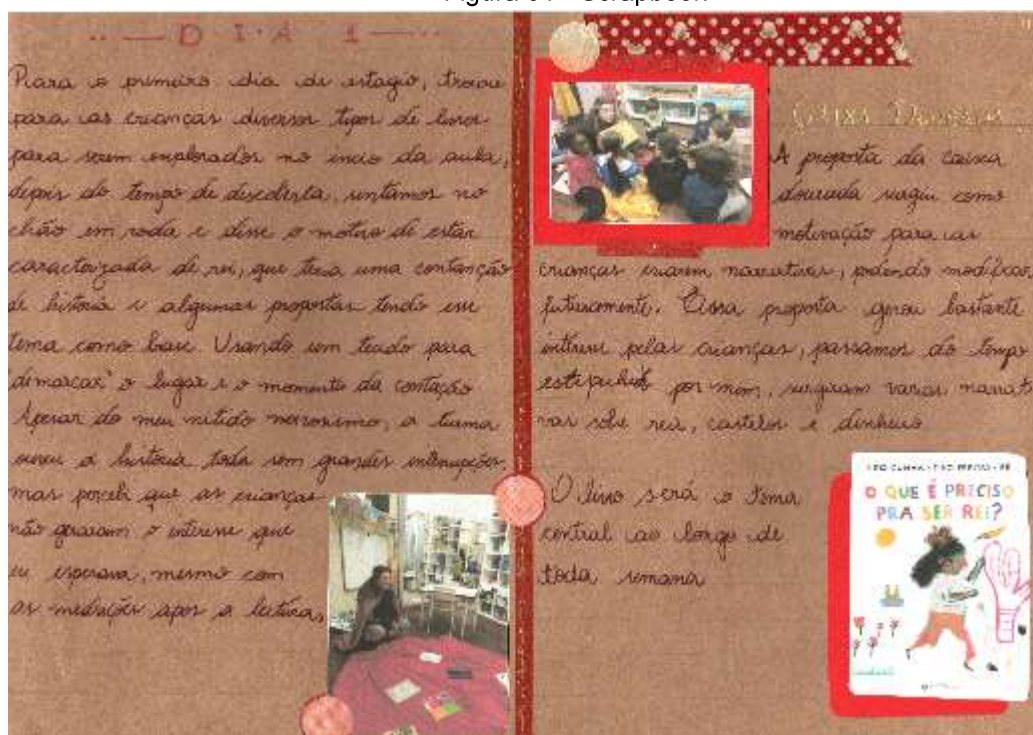 DIA 1
Para o primeiro dia de estagio, trouxe
para as crianças diversos tipos de livros
para serem explorados no inicio da aula,
depois do tempo de descoberta, sentamos no
chão em roda e disse o motivo de estar
caracterizada de rei, que teria uma contanção
de história e algumas propostas tendo esse
tema como base. Usando um tecido para
dimarcar o lugar e o momento da contação
Apesar do meu nitido nervosismo, a turma
ouviu a história toda sem grandes interrupções.
mas percebi que as crianças
não geraram o interesse que
eu esperava, mesmo com
as mediações apos a leitura,
A proposta da caixa
dourada surgiu como
motivação para as
crianças criarem narrativas, podendo modificar
futuramente. Essa proposta gerou bastante
interesse pelas crianças, passamos do tempo
por mim, surgiram varias narrati
vas sobre reis, castelos e dinheiro
O livro será o tema
central ao longo de
toda semana
O QUE É PRECISO
PRA SER REI?